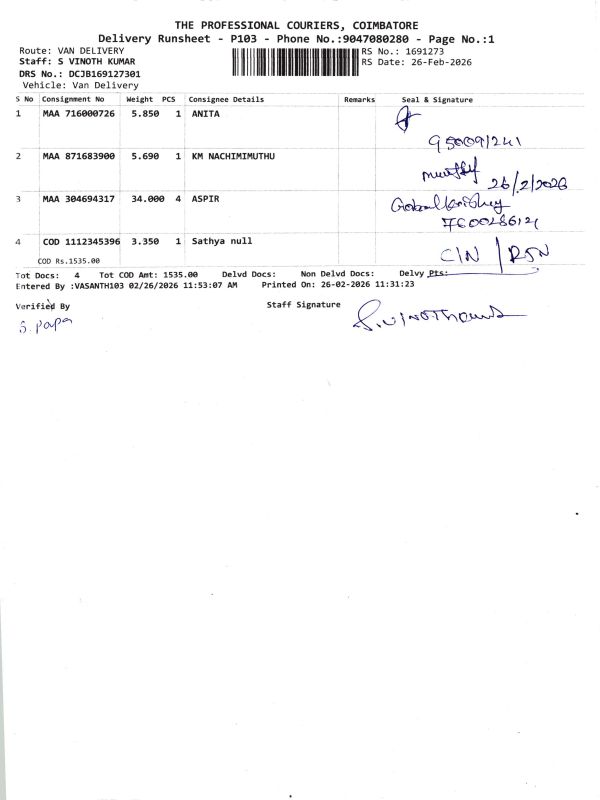 THE PROFESSIONAL COURIERS, COIMBATORE
Delivery Runsheet - P103 - Phone No.:9047080280 - Page No.:1
Route: VAN DELIVERY
RS No.: 1691273
Staff: S VINOTH KUMAR
RS Date: 26-Feb-2026
DRS No.: DCJB169127301
Vehicle: Van Delivery
S No Consignment No Weight PCS Consignee Details Remarks Seal & Signature
1 MAA 716000726 5.850 1 ANITA
2 MAA 871683900 5.690 1 KM NACHIMIMUTHU
26/2/2026
3 MAA 304694317 34.000 4 ASPIR
4 COD 1112345396 3.350 1 Sathya null
COD Rs.1535.00
C/N
Tot Docs: 4 Tot COD Amt: 1535.00 Delvd Docs: Non Delvd Docs: Delvy Pts:
Entered By :VASANTH103 02/26/2026 11:53:07 AM Printed On: 26-02-2026 11:31:23
Verified By Staff Signature
S. Papa